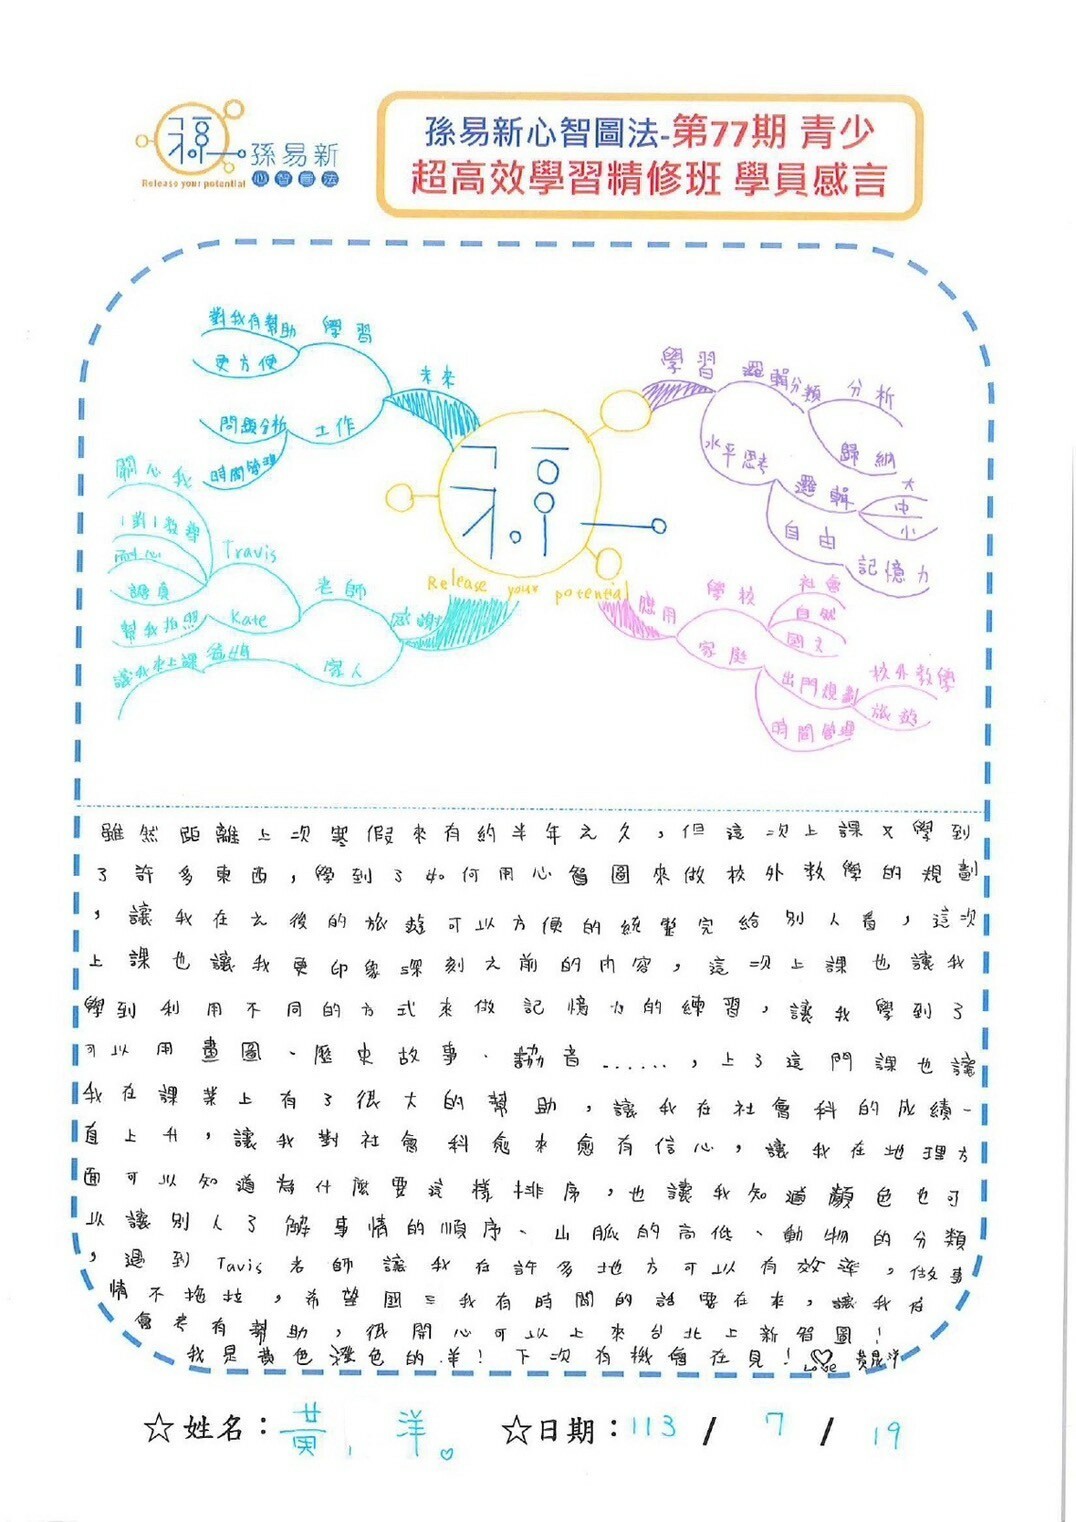 孫易新
心智圖法
Release your potential
孫易新心智圖法-第77期 青少
超高效學習精修班 學員感言
對我有幫助
學習
更方便
未來
問題分析
工作
時間管理
關心我
1對1教學
耐心
認真
Travis
老師
幫我拍照
Kate
感謝
讓我來上課
爸媽
家人
Release your potential
學習
邏輯分類
分析
歸納
水平思考
邏輯
大
中
小
自由
記憶力
應用
學校
社會
自然
國文
家庭
出門規劃
校外教學
旅遊
時間管理
雖然距離上次寒假來有約半年之久，但這次上課又學到
了許多東西，學到了如何用心智圖來做校外教學的規劃
，讓我在之後的旅遊可以方便的統整完給別人看，這次
上課也讓我更印象深刻之前的內容，這次上課也讓我
學到利用不同的方式來做記憶力的練習，讓我學到了
可以用畫圖、歷史故事、諧音......，上了這門課也讓
我在課業上有了很大的幫助，讓我在社會科的成績一
直上升，讓我對社會科愈來愈有信心，讓我在地理方
面可以知道為什麼要這樣排序，也讓我知道顏色也可
以讓別人了解事情的順序、山脈的高低、動物的分類
，遇到Tavis老師讓我在許多地方可以有效率，做事
情不拖拉，希望國三我有時間的話要在來，讓我在
會考有幫助，很開心可以上來台北上新智圖！
我是黃色澄色的羊！下次有機會在見！Love 黃晟洋
☆姓名：黃 洋
☆日期：113 / 7 / 19